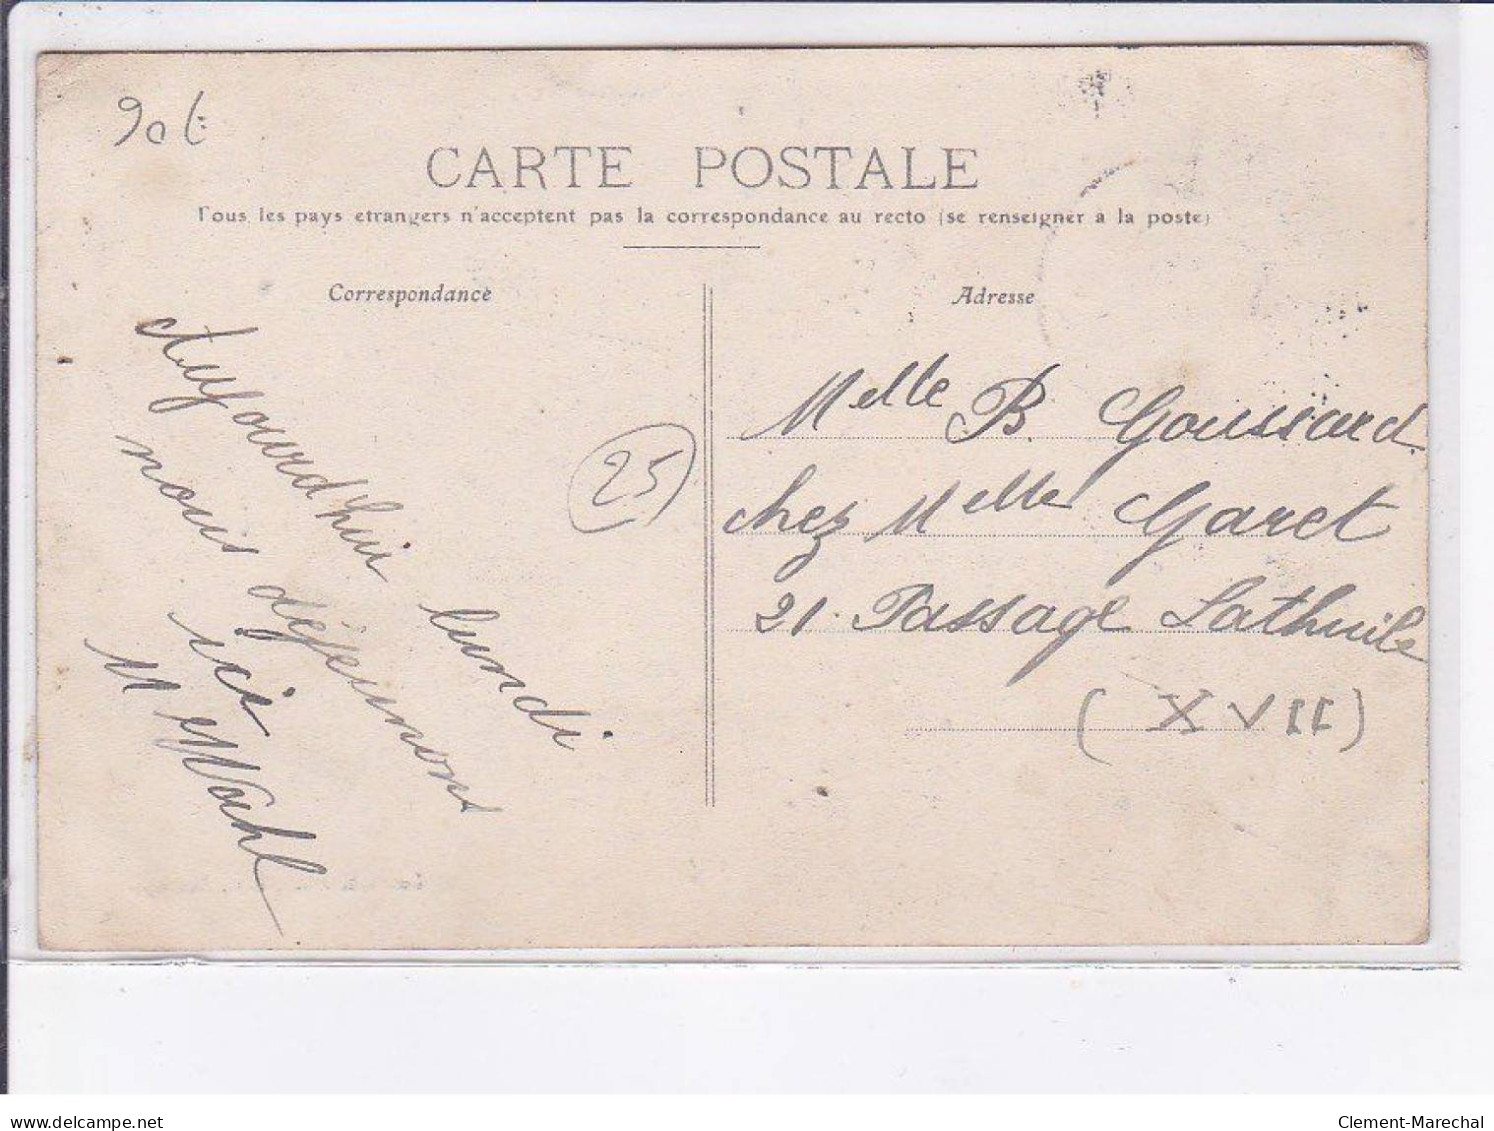 90€
CARTE POSTALE
Tous les pays etrangers n'acceptent pas la correspondance au recto (se renseigner a la poste)
Correspondance
Adresse
Aujourd'hui lundi
nous déjeunons
ici
M Wahl
25
Melle B. Goussard
chez Melle Garet
21 Passage Lathuile
(XVII)
www.delcampe.net
Clement-Marechal